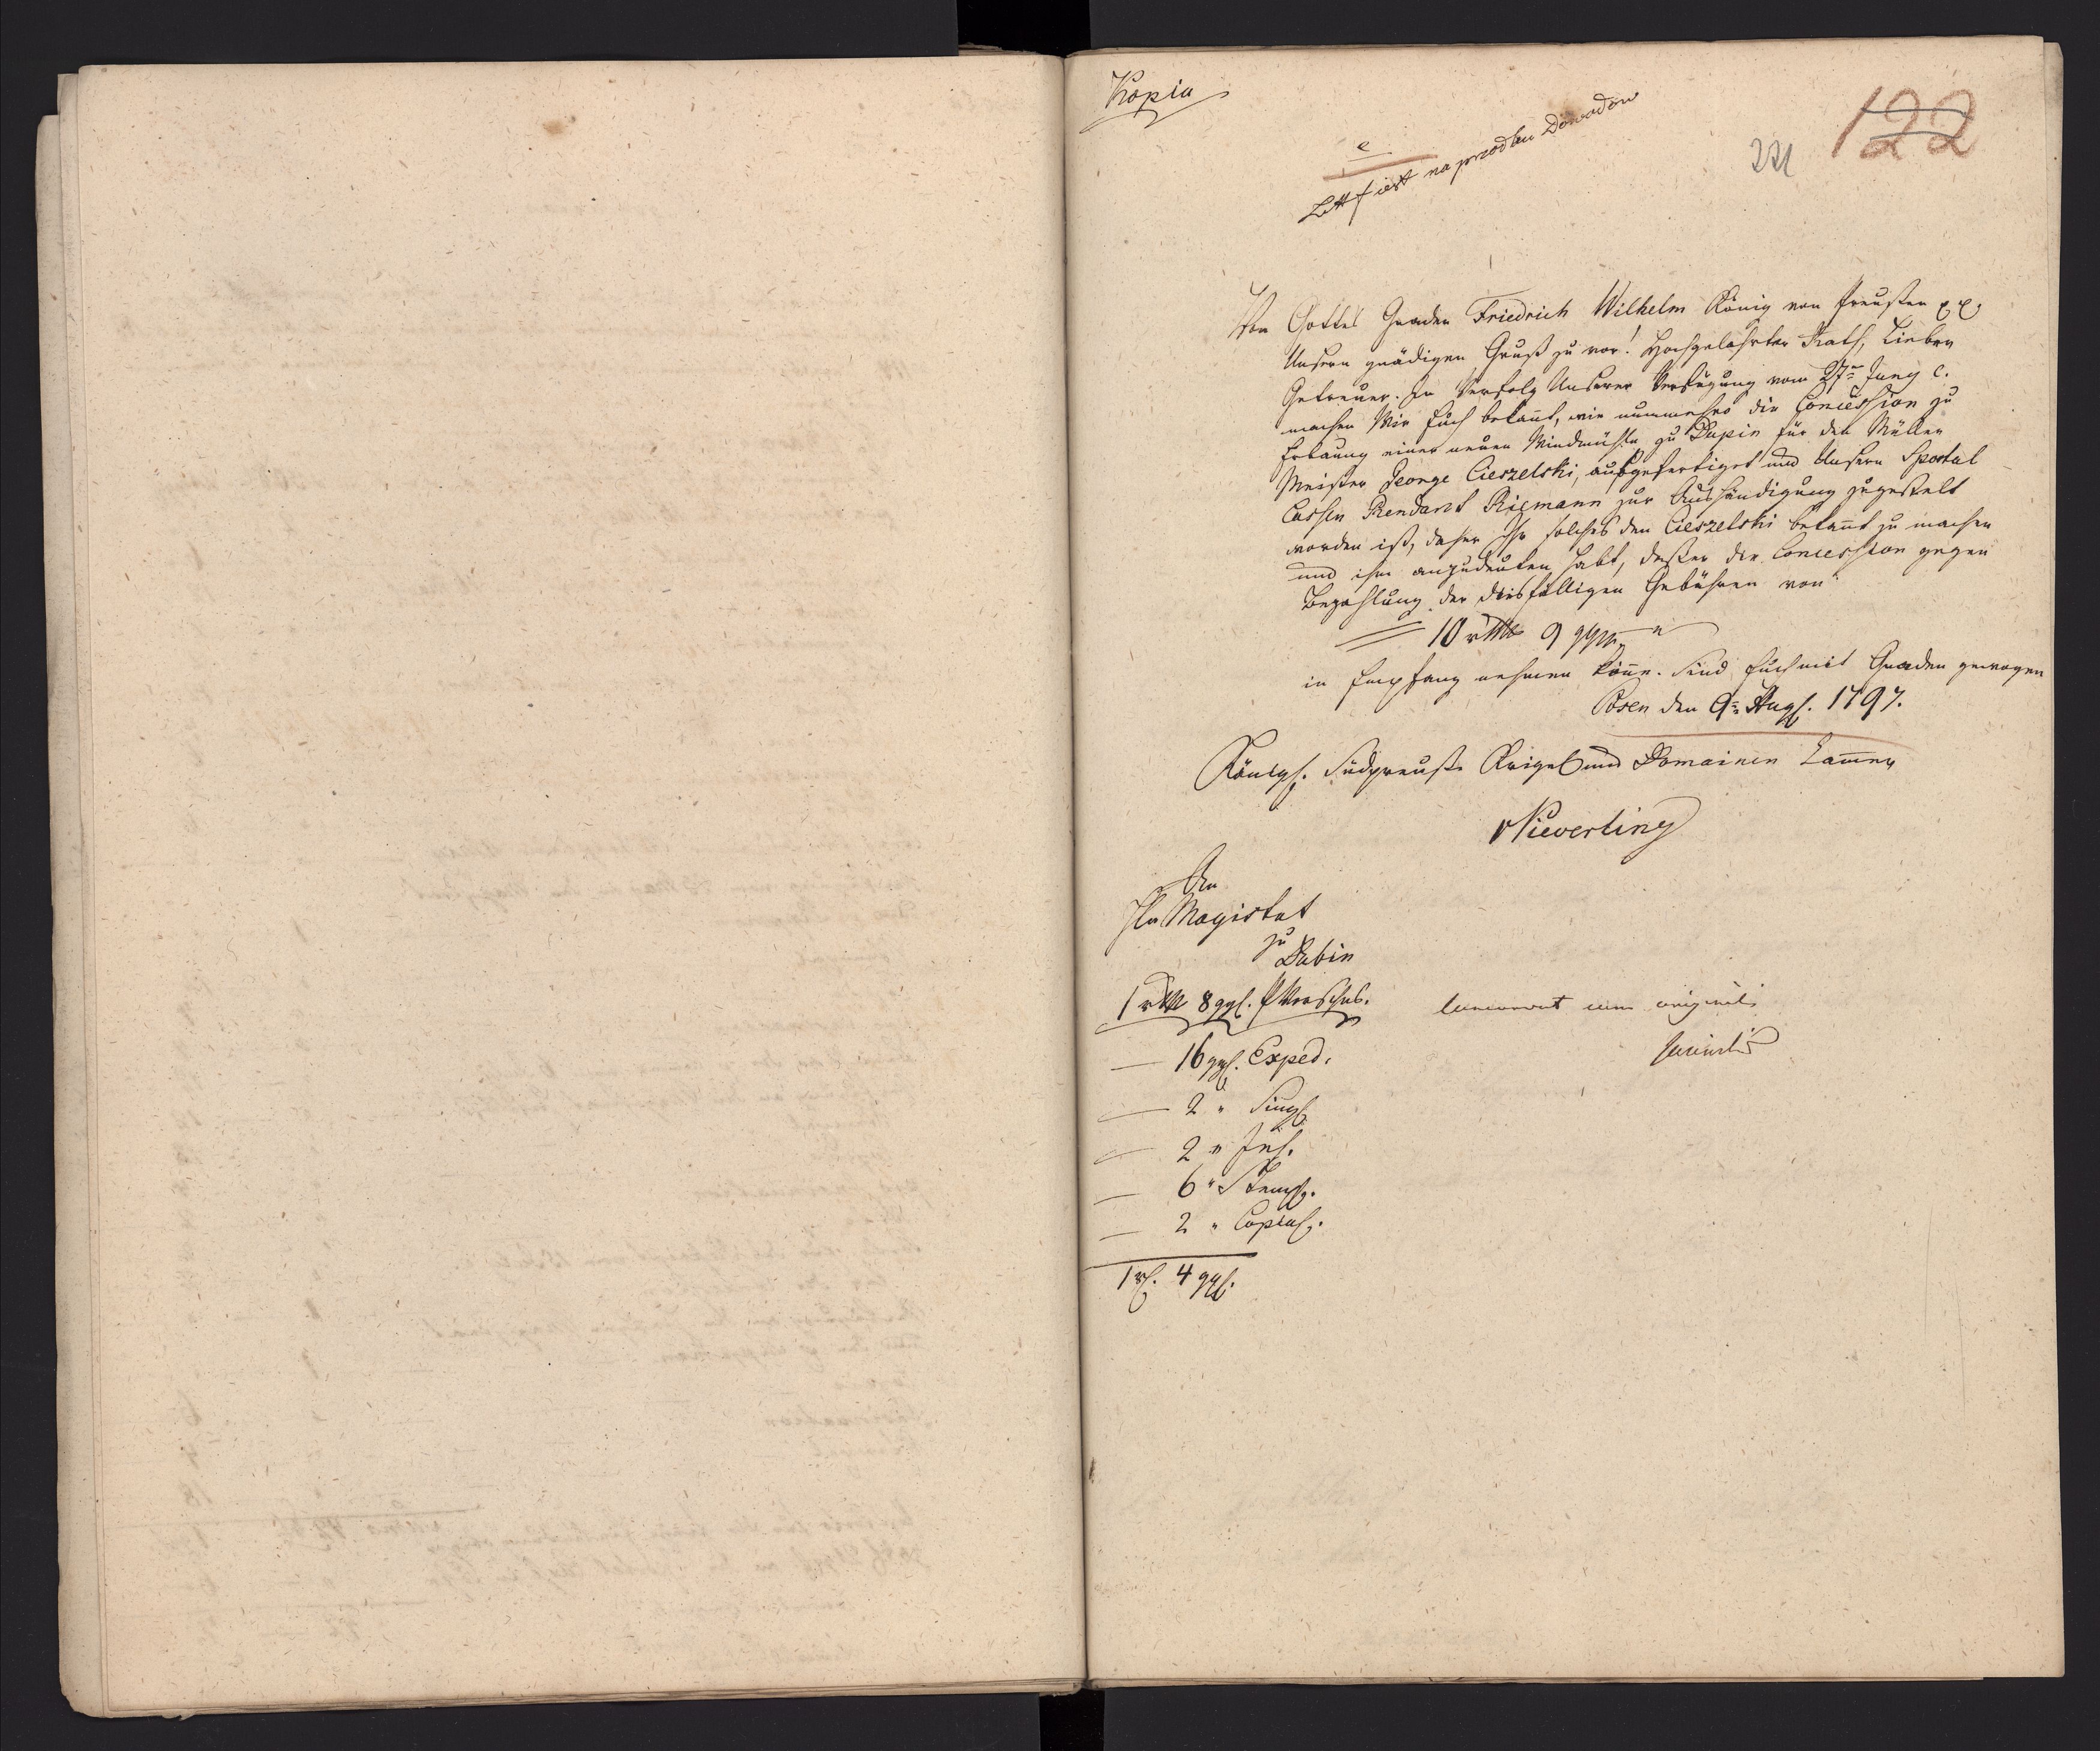 Kopia
e
Litt f iest na przodku Dowodow
221
122
Von Gottes Gnaden Friedrich Wilhelm König von Preußen p p.
Unsern gnädigen Gruß zu vor! Hochgelahrter Rath, Lieber
Getreuer. In Verfolg Unserer Verfügung vom 27n Juny c.
machen Wir Euch bekant, wie nunmehro die Concession zu
Erbauung einer neuen Windmühle zu Dupin für den Müller
Meister George Cieszelski, ausgefertiget und Unserm Sportul
Cassen Rendant Riemann zur Aushändigung zugestelt
worden ist, daher Ihr solches dem Cieszelski bekant zu machen
und ihm anzudeuten habt, daß er die Concession gegen
Bezahlung der diesfälligen Gebühren von
10 rthlr 9 ggr
in Empfang nehmen könne. Sind Euch mit Gnaden gewogen
Posen den 9n Aug. 1797.
Königl. Südpreuß. Kriges und Domainen Cammer
v Nieverling
An
Magistrat
zu
Dubin
1 rthl 8 ggl.
16 ggl. Exped.
2 " Sieg.
2 " Ins.
6 " Stemp.
2 " Copial.
1 rl. 4 ggl.
Concordat cum originali